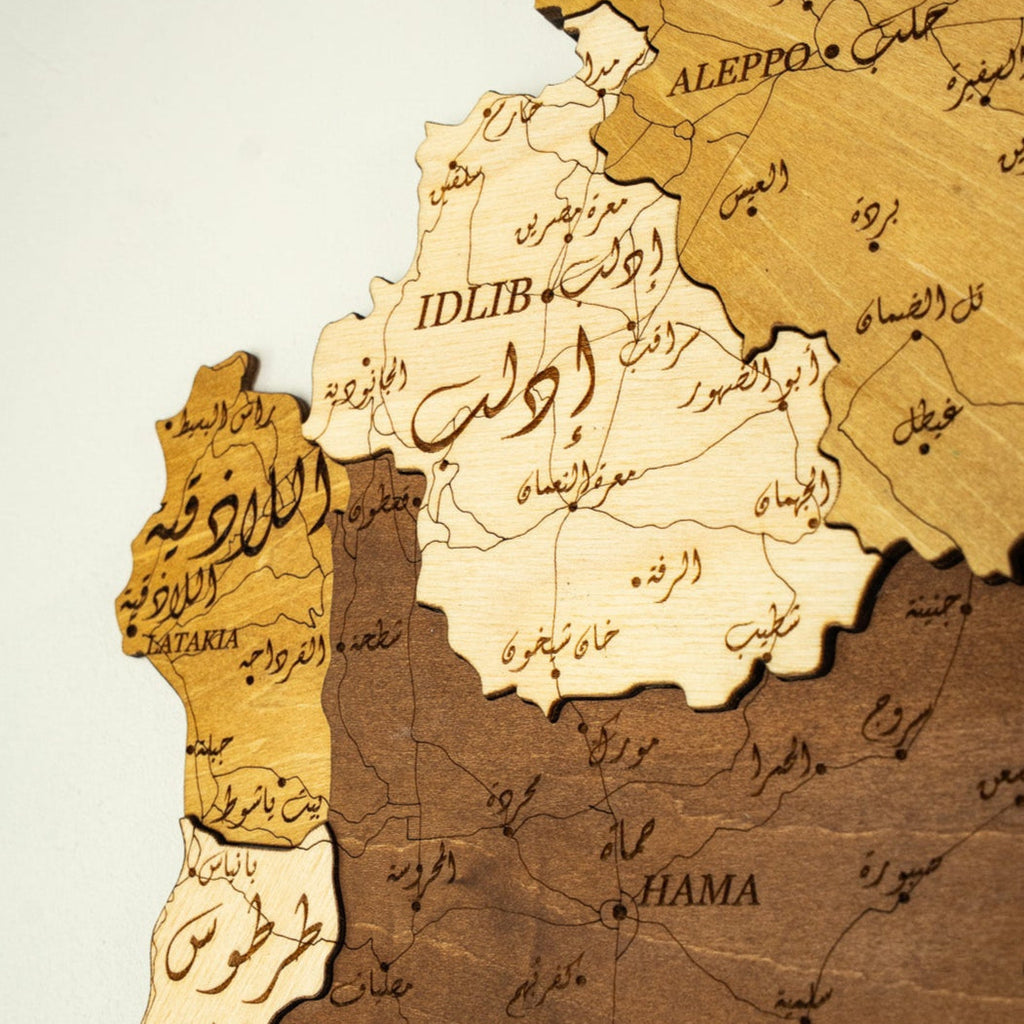 سرمدا
ALEPPO حلب
السفيرة
حارم
سلقين
العيس
معرة مصرين
بردة
إدلب
IDLIB
تل الضمان
سراقب
الجانودية
إدلب
أبو الضهور
رأس البسيط
غيطل
اللاذقية
معرة النعمان
الجهمان
قفطون
الرفة
اللاذقية
LATAKIA
جنينة
شطحة
القرداحة
خان شيخون
شطيب
سروج
جبلة
مورك
الحمرا
بيت ياشوط
محردة
حماة
بانياس
الحروسة
HAMA
صبورة
طرطوس
مصياف
كفربهم
سلمية